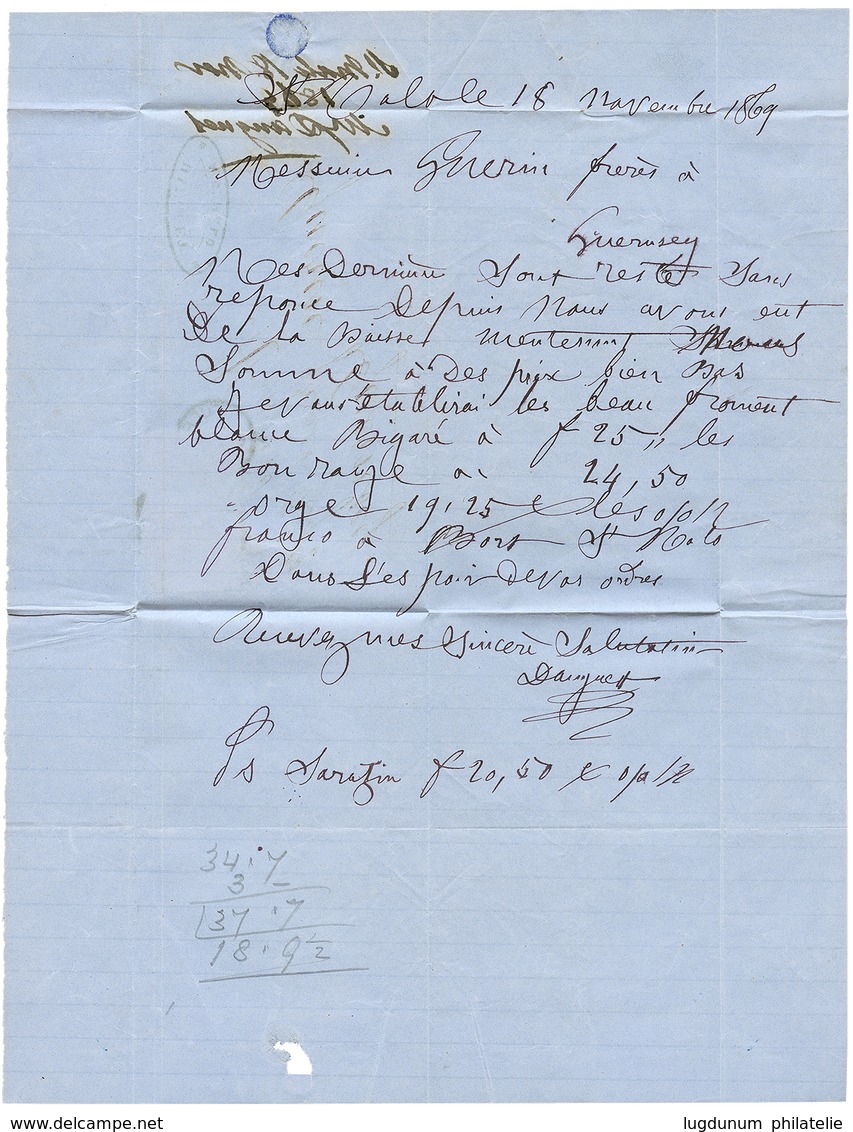 St Malo le 18 Novembre 1869
Messieurs Guerin frères à
Guernsey
Mes Dernière Sont restés Sans
reponce Depuis Nous avons eut
De la Baisse mentenent
Somme à Des prix bien Bas
Je vous établirai les beau froment
blanc Bigaré à f 25 " les
Bon rouge à 24,50
orge 19,25 les 0/0 K
franco à Bort St Malo
Dans L'espoir De vos ordres
Recevez mes Sincere Salutation
Dauguet
Ps Sarazin f 20,50 0/0 K
34 . 7
3 –
37 . 7
18 . 9 ½
www.delcampe.net
lugdunum philatelie